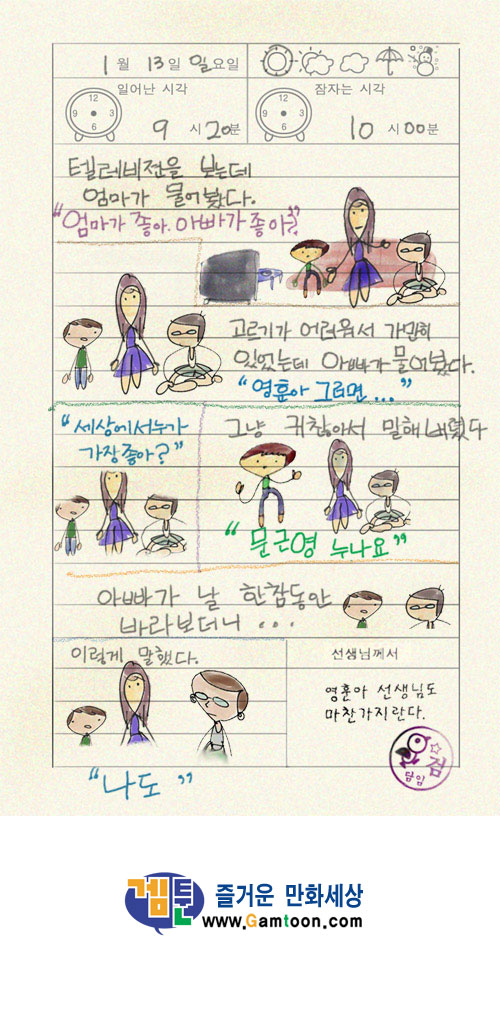 1월 13일 일요일
일어난 시각
12
9 3
6
9시 20분
잠자는 시각
12
9 3
6
10시 00분
텔레비전을 보는데
엄마가 물어봤다.
"엄마가 좋아. 아빠가 좋아?"
고르기가 어려워서 가만히
있었는데 아빠가 물어봤다.
"영훈아 그러면..."
"세상에서 누가
가장 좋아?"
그냥 귀찮아서 말해버렸다
"문근영 누나요"
아빠가 날 한참동안
바라보더니...
이렇게 말했다.
"나도"
선생님께서
영훈아 선생님도
마찬가지란다.
검
담임
겜툰 즐거운 만화세상
www.Gamtoon.com